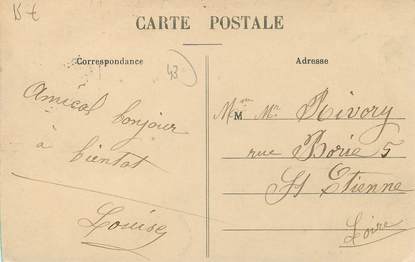 15 €
CARTE POSTALE
Correspondance
Adresse
43
Amical bonjour
à bientot
Louise
Mme M Mr Rivory
rue Borie 5
St Etienne
Loire